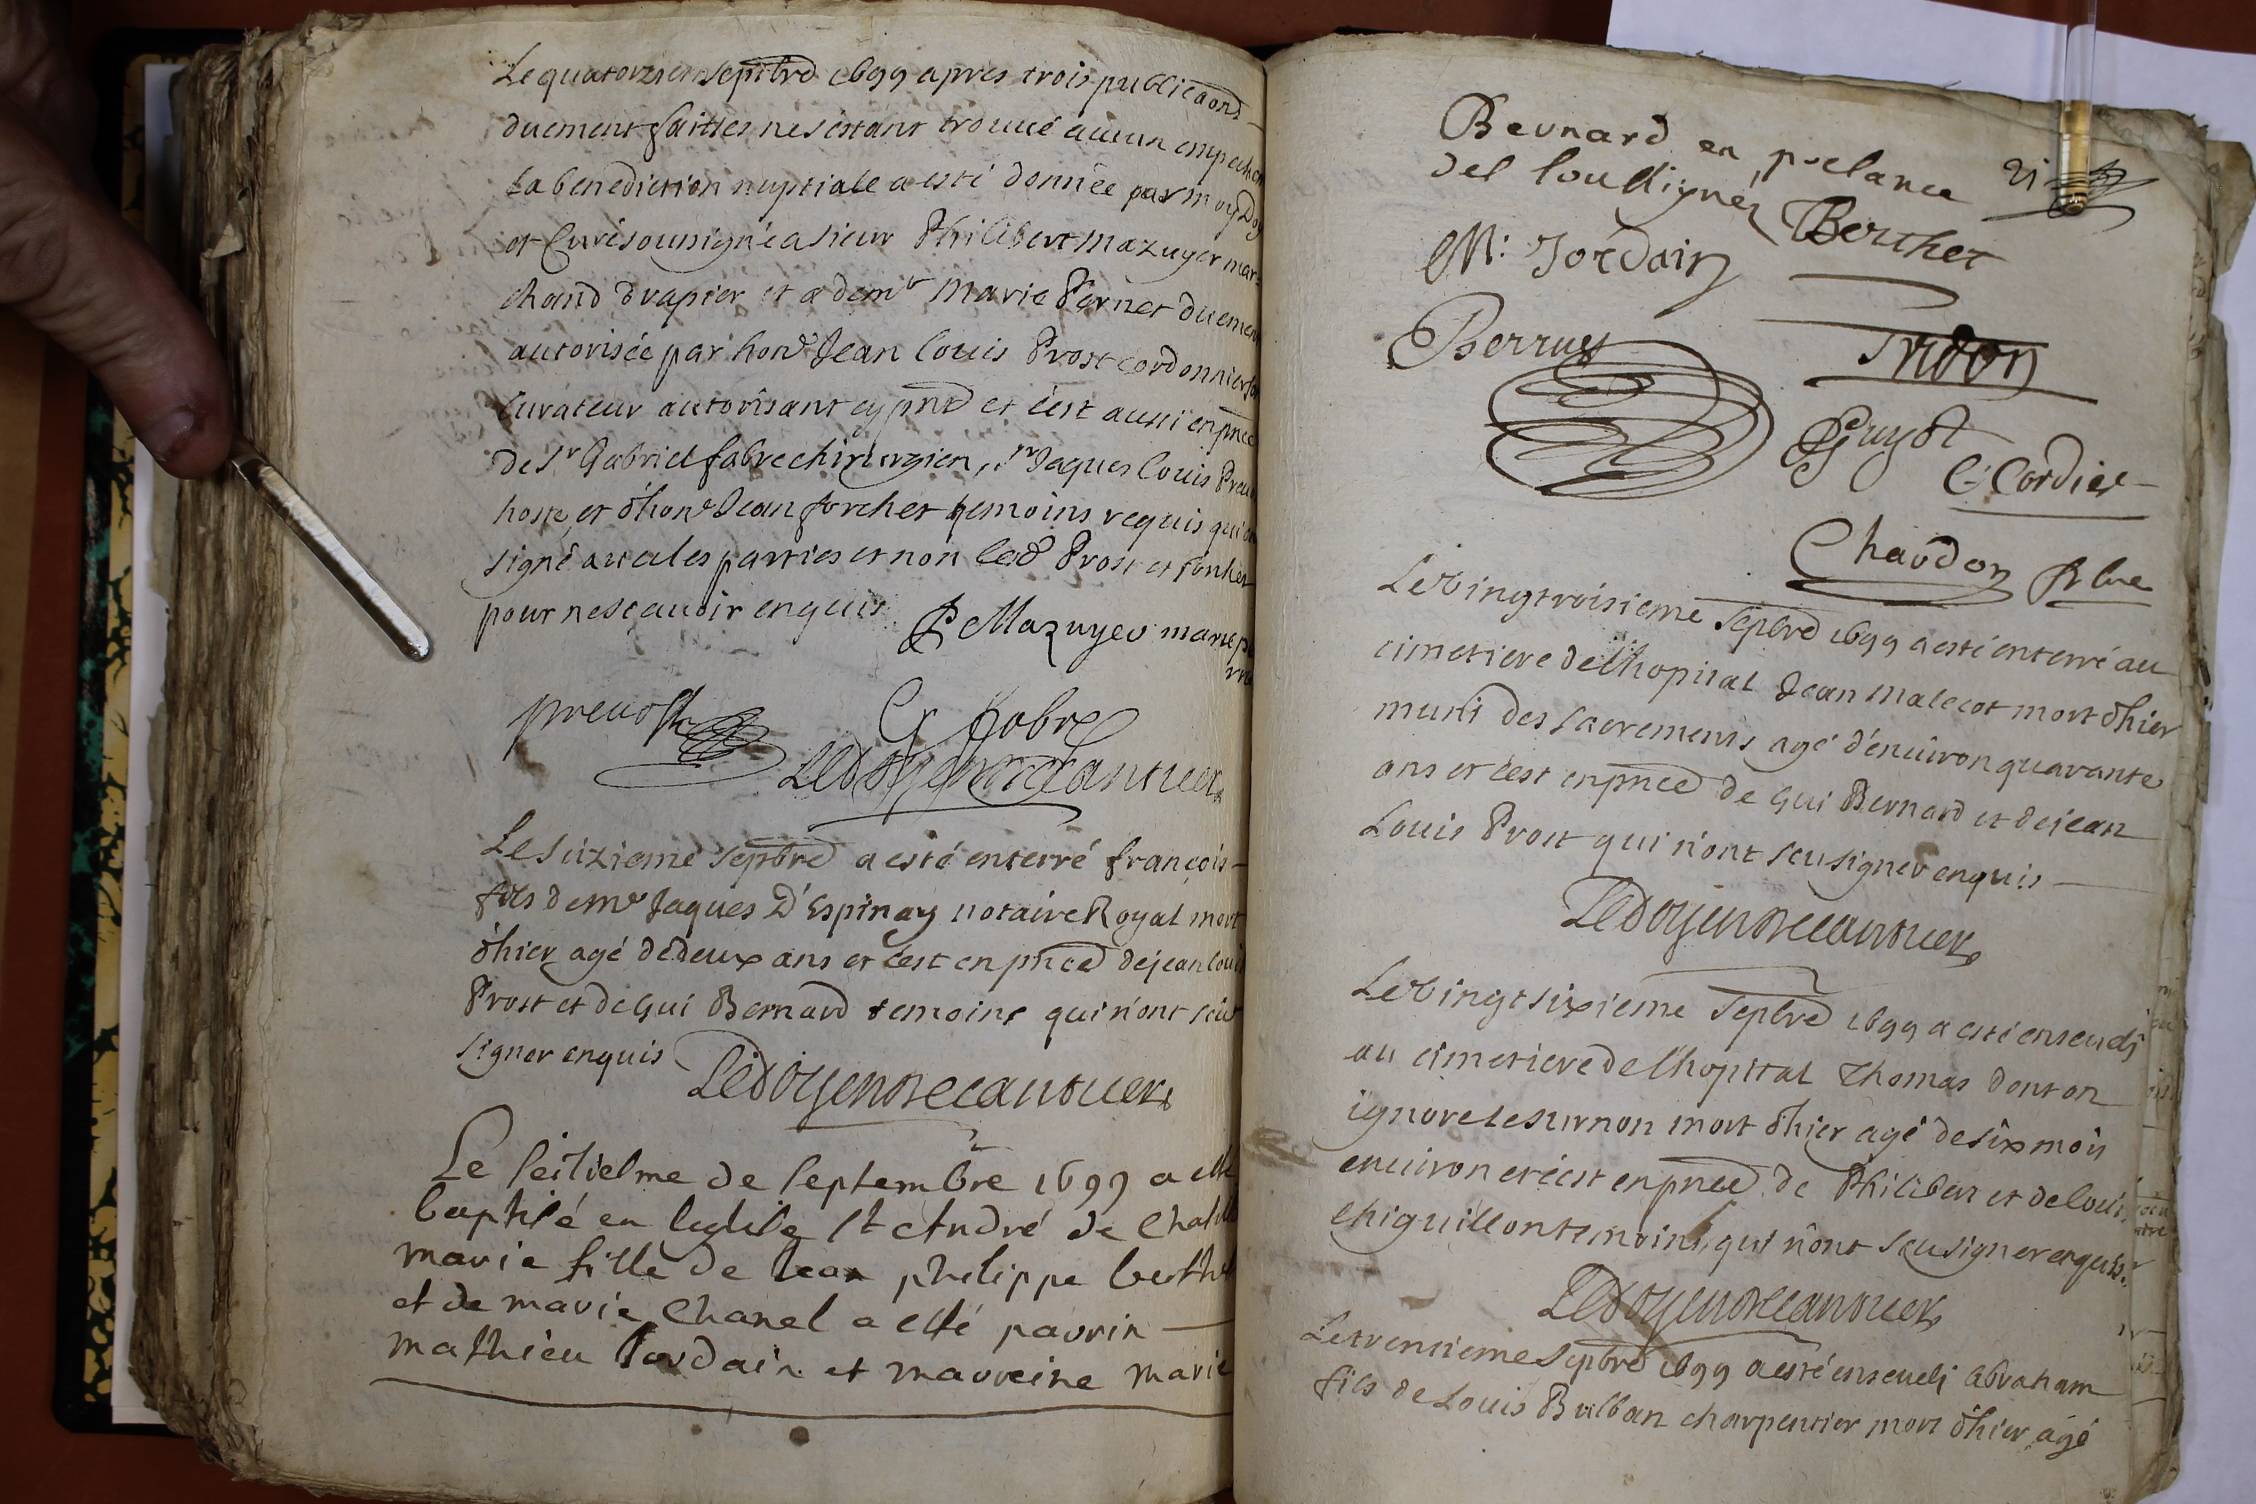 Le quatorzieme septbre 1699 apres trois publicaons
duement faittes ne s'estant trouvé aucun empechem
la benediction nuptiale a esté donnée par moy Doy
et Curé sousigné a sieur Philibert Mazuyer mar
chand drapier et a demlle Marie Pernet duement
autorisée par honble Jean Louis Prost cordonnier son
curateur autorisant cy pnt et c'est aussi en pnce
de Sr Gabriel fabre chirurgien, Sr Jaques Louis Prevo
hoste, et d'honble Jean forcher temoins requis qui on
signé avec les parties et non led Prost et
pour ne scavoir enquis P Mazuyer marie pe
prevost G fabre
Le doyen
Le sizieme septbre a esté enterré françois
fils de me Jaques D'Espinay notaire Royal mort
d'hier agé de deux ans et c'est en pnce de jean louis
Prost et de Gui Bernard temoins qui n'ont sceu
signer enquis Le doyen
Le seitiesme de septembre 1699 a esté
baptisé en leglise st André de
marie fille de Jean philippe berthet
et de marie Chanel a esté parrin
mathieu Jordain et marreine marie
Bernard en presance 21
des soussignéz Berthet
M: Jordain
Berruy
Tridon
Guyot
C. Cordier
Chaudon
Le vingtroisieme septbre 1699 a esté enterré au
cimetiere de l'hopital Jean Malecot mort d'hier
muni des sacrements agé d'environ quarante
ans et c'est en pnce de Gui Bernard et de jean
Louis Prost qui n'ont sceu signer enquis
Le doyen
Le vingt sixieme septbre 1699 a esté enseveli
au cimetiere de l'hopital Thomas dont on
ignore le surnon mort d'hier agé de six mois
environ et c'est en pnce de Philibert et de louis
chiguillon temoins, qui n'ont sceu signer enquis
Le doyen
Le trentieme septbre 1699 a esté enseveli abraham
fils de Louis Bulban charpentier mort d'hier agé